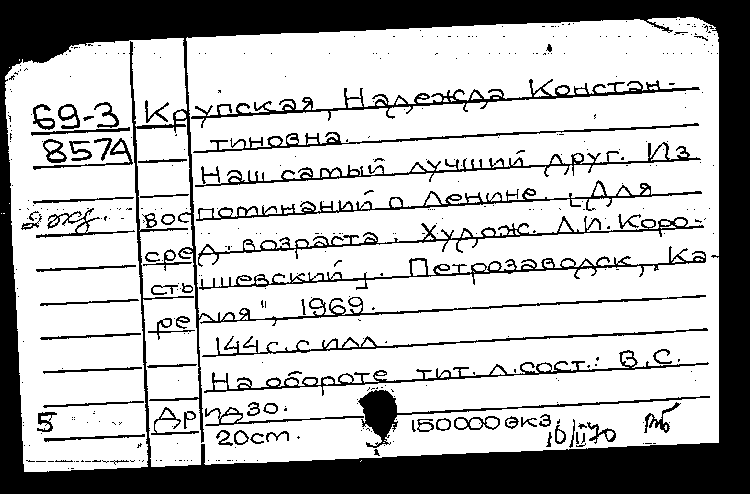 69-3 Крупская, Надежда Констан-
857А тиновна.
Наш самый лучший друг. Из
2 экз. воспоминаний о Ленине. [Для
сред. возраста. Худож. Л.И. Коро-
стышевский]. Петрозаводск, "Ка-
релия", 1969.
144 с. с илл.
На обороте тит. л. сост.: В.С.
5 Дридзо.
20 ст. 150000 экз.